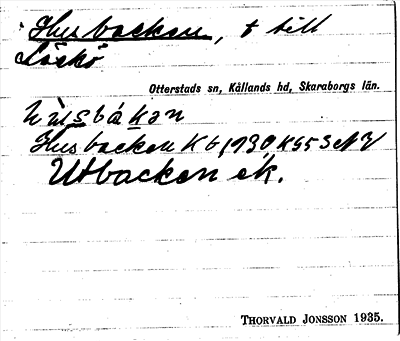 Husbacken, t till
Läckö
Otterstads sn, Kållands hd, Skaraborgs län.
hùsbákan
Husbacken Kb, 1930, K 55 S NV
Utbacken ek.
THORVALD JONSSON 1935.